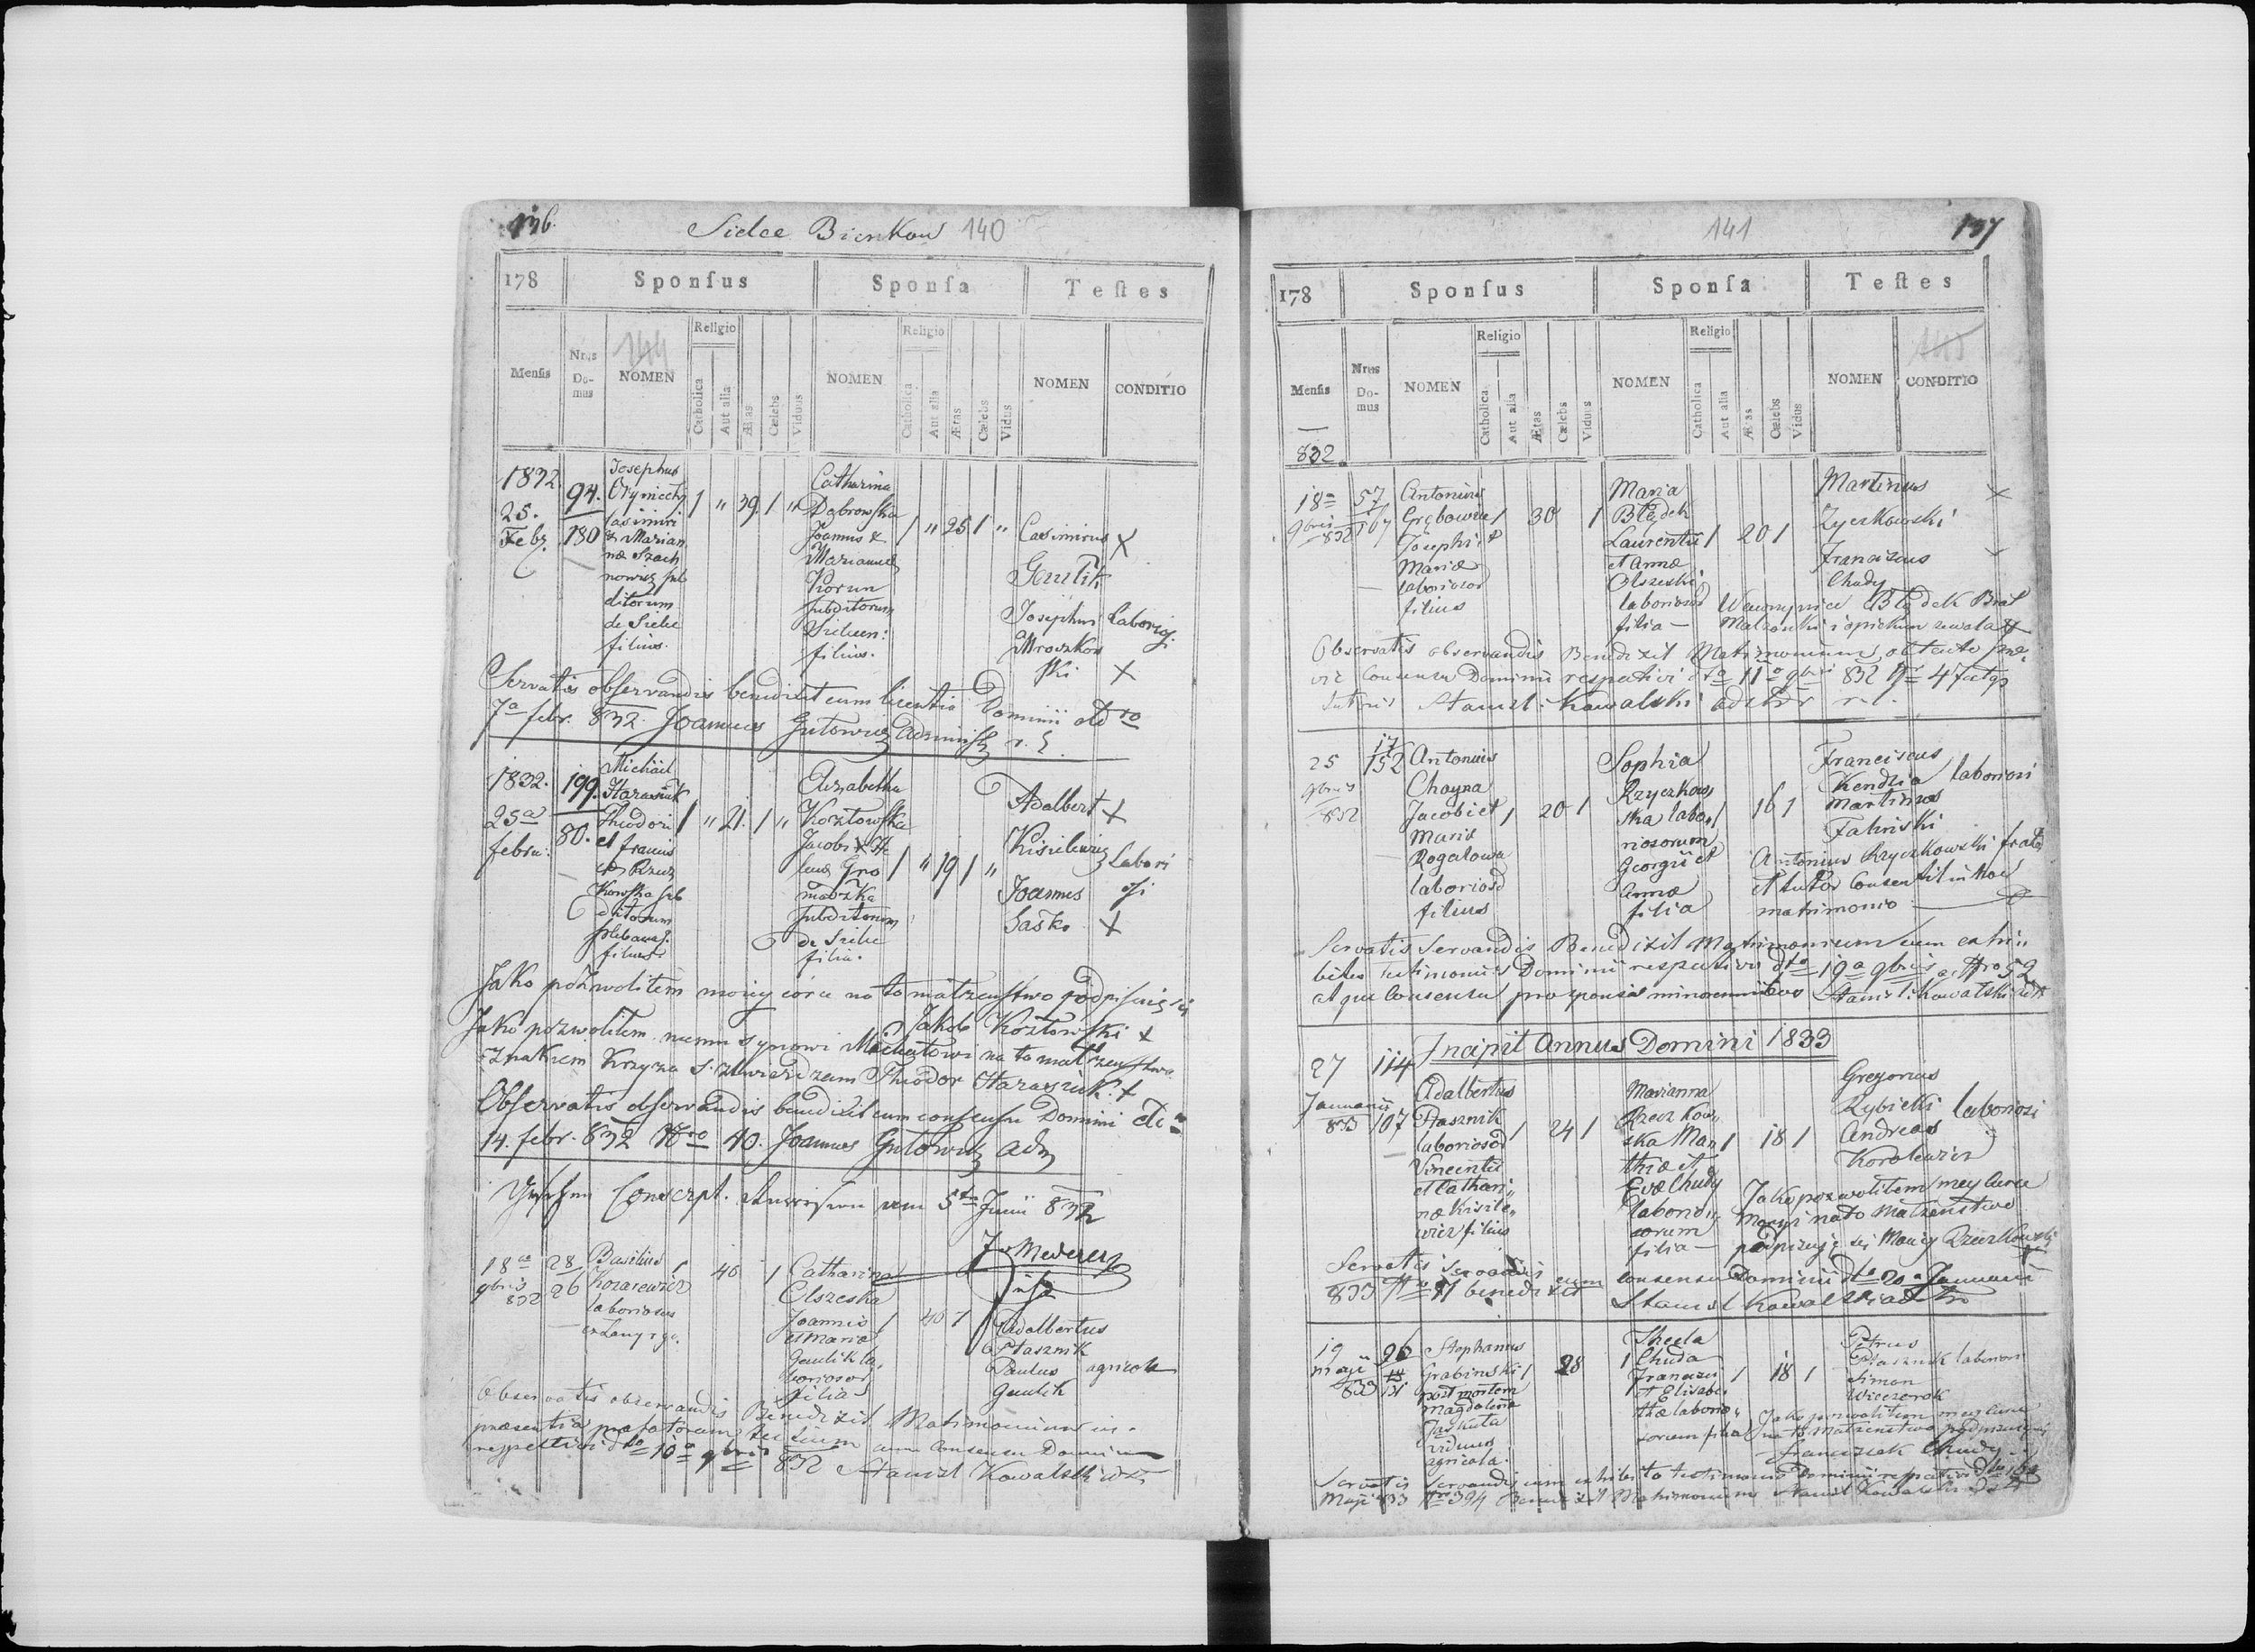 136.
Sielce Bienkow 140
178
Sponsus
Sponsa
Testes
Mensis
Nrus Domus
144
NOMEN
Religio
Catholica
Aut alia
Ætas
Cælebs
Viduus
NOMEN
Religio
Catholica
Aut alia
Ætas
Cælebs
Vidus
NOMEN
CONDITIO
1832.
25.
Febr.
94.
180
Josephus
Casimiri
& Marian
næ Szach
nowicz sub
ditorum
de Sielce
filius.
1 " 39. 1 "
Catharina
Dąbrowska
Joannis &
Mariannæ
Korun
subditorum
filia.
1 " 25 1 "
Casimirus X
Gawlik
Josephus Laborios.
Mroczkow
ski X
Servatis observandis benedixit cum licentia Dominii dto
7a febr. 832. Joannes Gutowicz Administr
1832.
25a
febru:
199.
80.
Michael
Harasiuk
Theodori
et francis
Rzecz
kowska sub
ditorum
filius
1 " 21. 1 "
Elizabetha
Kozłowska
Jacobi & He
lenæ Gro
maszka
subditorum
de Sielce
filia.
1 " 19 1 "
Adalbert X
Kisielewicz Labori
Joannes osi
Saśko X
Jako pozwoliłem moiey córce na to małżeństwo podpisuię się
Jakob Kozłowski X
Jako pozwoliłem memu synowi Michałowi na to małżeństwo
znakiem Krzyza stwierdzam Theodor Harasziuk. +
Observatis observandis benedixit cum consensu Dominii dto
14. febr. 832 Nro 40. Joannes Gutowicz adm
5ta Junii 832
18a
9bris
832
28
26
Basilius
Kozarewicz
laboriosus
1 40 1
Catharina
Olszeska
Joannis
et Maria
Gaulik la
boriosor
filia
1 40 1
Adalbertus
Ptasznik
Paulus agricolæ
Gaulik
Observatis observandis Benedixit Matrimonium in
præsentia præfatorum testium cum Consensu Dominii
respectivi dto 10a 9bris 832 Stanisl Kowalski
141
137
178
Sponsus
Sponsa
Testes
Mensis
Nrus Domus
NOMEN
Religio
Catholica
Aut alia
Ætas
Cælebs
Viduus
NOMEN
Religio
Catholica
Aut alia
Ætas
Cælebs
Vidus
NOMEN
145
CONDITIO
832
18a
9bris
832
57
167
Antonius
Josephi et
Maria
laborioso
filius
1 30 1
Maria
Blądek
Laurentii
et Annæ
Olszeski
laboriosor
filia
1 20 1
Martinus X
Zyczkowski
Franciscus
Chudy
Wawrzyniec Blądek Brat
Małżonki i opiekun zewala
Observatis observandis Benedixit Matrimonium obtento præ
vie Consensu Dominii respectivi dto 11a 9bris 832
Stanisl: Kowalski
25
9bris
832
17
152
Antonius
Choyna
Jacobi et
Maria
Rogalowa
laboriosor
filius
1 20 1
Sophia
Rzyczkow
ska labo
riosorum
Georgii et
Annæ
filia
1 16 1
Franciscus
Kendzia laboriosi
Martinus
Antonius Rzyczkowski frater
et tutor Consentit in hoc
matrimonio
Servatis Servandis Benedixit Matrimonium cum exhi
bitis Testimoniis Dominii respectivi dto 19a 9bris a Nro 52
atque Consensu pro sponsa minorennitatis Stanisl: Kowalski
Incipit Annus Domini 1833
27
Januarii
833
114
107
Adalbertus
Ptasznik
laboriosor
Vincentii
et Cathari
næ Kisile
wicz filius
1 24 1
Marianna
Rzeczkow
ska Mar
thiæ et
Evæ Chudy
laborio
sorum
filia
1 18 1
Gregorius
Rybicki laboriosi
Andreas
Korolewicz
Jako pozwoliłem mey Curce
Maryi na to Małżeństwo
podpisuję się Maciey Rzeczkowski
Servatis Servandis cum consensu Dominii dto 20a Januarii
833 Nro 11 benedixit Stanisl Kowalski
19
Maji
833
96
131
Stephanus
Grabinski
post mortem
Magdalena
Jaskuta
viduus
agricola.
1 28
Thecla
Chuda
Francisci
et Elisabe
thæ laborio
sorum filia
1 18 1
Petrus
Ptasznik laboriosi
Simon
Wieczorek
Jako pozwoliłem mey Curce
na to Małżeństwo podpisuję się
Franciszek Chudy
Servatis Servandis cum exhibito testimonio Dominii respectivi
Maji 833 Nro 394 Benedixit Matrimonium Stanisl Kowalski